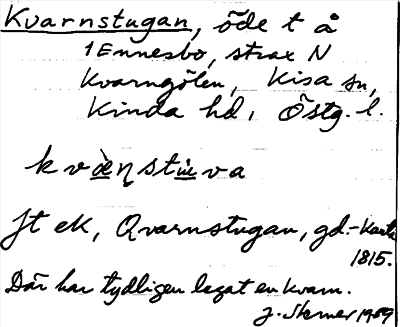 Kvarnstugan, öde t å
1 Ennesbo, strax N
Kvarngölen, Kisa sn,
Kinda hd, Östg. l.
kvæ̀ɳstu̇va
Jt ek, Qvarnstugan, gd.-karta
1815.
Där har tydligen legat en kvarn.
J. Sterner 1959